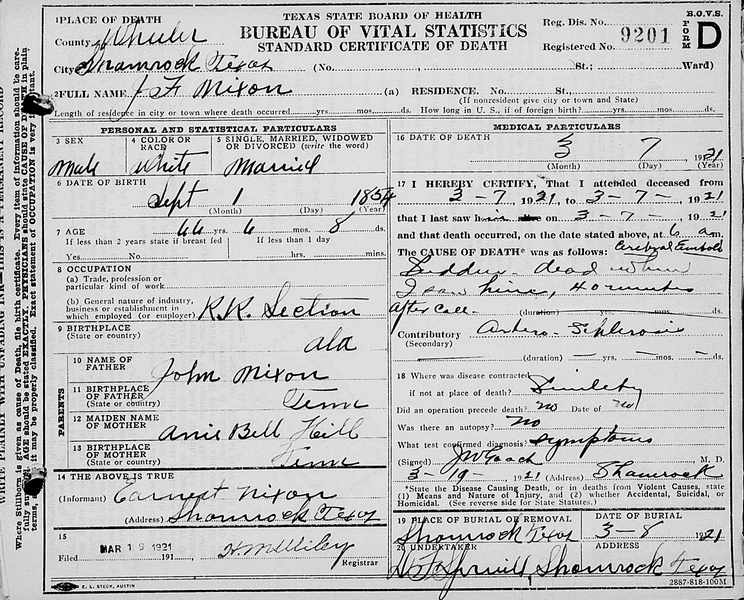 TEXAS STATE BOARD OF HEALTH
BUREAU OF VITAL STATISTICS
STANDARD CERTIFICATE OF DEATH
Reg. Dis. No.
Registered No. 9201
B.O.V.S.
FORM D
1 PLACE OF DEATH
County Wheeler
City Shamrock Texas (No. St.; Ward)
2 FULL NAME J F Nixon (a) RESIDENCE. No. St.,
(If nonresident give city or town and State)
Length of residence in city or town where death occurred yrs. mos. ds. How long in U. S., if of foreign birth? yrs. mos. ds.
PERSONAL AND STATISTICAL PARTICULARS
3 SEX
Male
4 COLOR OR RACE
White
5 SINGLE, MARRIED, WIDOWED OR DIVORCED (write the word)
Married
6 DATE OF BIRTH
Sept 1 1854
(Month) (Day) (Year)
7 AGE 66 yrs. 6 mos. 8 ds.
If less than 2 years state if breast fed
If less than 1 day
Yes No hrs. mins.
8 OCCUPATION
(a) Trade, profession or
particular kind of work
(b) General nature of industry,
business or establishment in
which employed (or employer) R.R. Section
9 BIRTHPLACE
(State or country) Ala
PARENTS
10 NAME OF
FATHER John Nixon
11 BIRTHPLACE
OF FATHER
(State or country) Tenn
12 MAIDEN NAME
OF MOTHER Anie Bell Hill
13 BIRTHPLACE
OF MOTHER
(State or country) Tenn
14 THE ABOVE IS TRUE
(Informant) Earnest Nixon
(Address) Shamrock Texas
15
Filed MAR 19 1921 191
Registrar
E. L. STECK, AUSTIN
MEDICAL PARTICULARS
16 DATE OF DEATH
3 7 1921
(Month) (Day) (Year)
17 I HEREBY CERTIFY, That I attended deceased from
3-7, 1921, to 3-7-, 1921
that I last saw him on 3-7-, 1921
and that death occurred, on the date stated above, at 6 am.
The CAUSE OF DEATH* was as follows: Cerebral
Sudden - dead when
I saw him, 40 minutes
after call. (duration) yrs. mos. ds.
Contributory
(Secondary)
(duration) yrs. mos. ds.
18 Where was disease contracted
if not at place of death?
Did an operation precede death? no Date of no
Was there an autopsy? no
What test confirmed diagnosis? symptoms
(Signed) M. D.
3-19-1921 (Address) Shamrock
*State the Disease Causing Death, or in deaths from Violent Causes, state
(1) Means and Nature of Injury, and (2) whether Accidental, Suicidal, or
Homicidal. (See reverse side for State Statutes.)
19 PLACE OF BURIAL OR REMOVAL
Shamrock Texas
DATE OF BURIAL
3-8 1921
20 UNDERTAKER
ADDRESS
Shamrock Texas
2887-818-100M